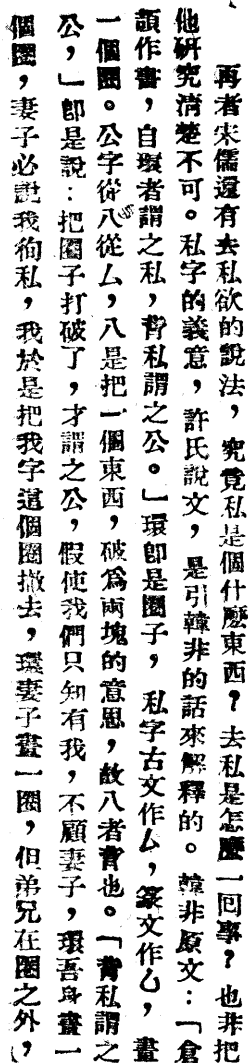 再者宋儒還有去私欲的說法，究竟私是個什麼東西？去私是怎麼一回事？也非把
他研究清楚不可。私字的義意，許氏說文，是引韓非的話來解釋的。韓非原文：「倉
頡作書，自環者謂之私，背私謂之公。」環即是圈子，私字古文作厶，篆文作𠫔，畫
一個圈。公字從八從厶，八是把一個東西，破為兩塊的意思，故八者背也。「背私謂之
公，」即是說：把圈子打破了，才謂之公，假使我們只知有我，不顧妻子，環吾身畫一
個圈，妻子必說我徇私，我於是把我字這個圈撤去，環妻子畫一圈，但弟兄在圈之外，